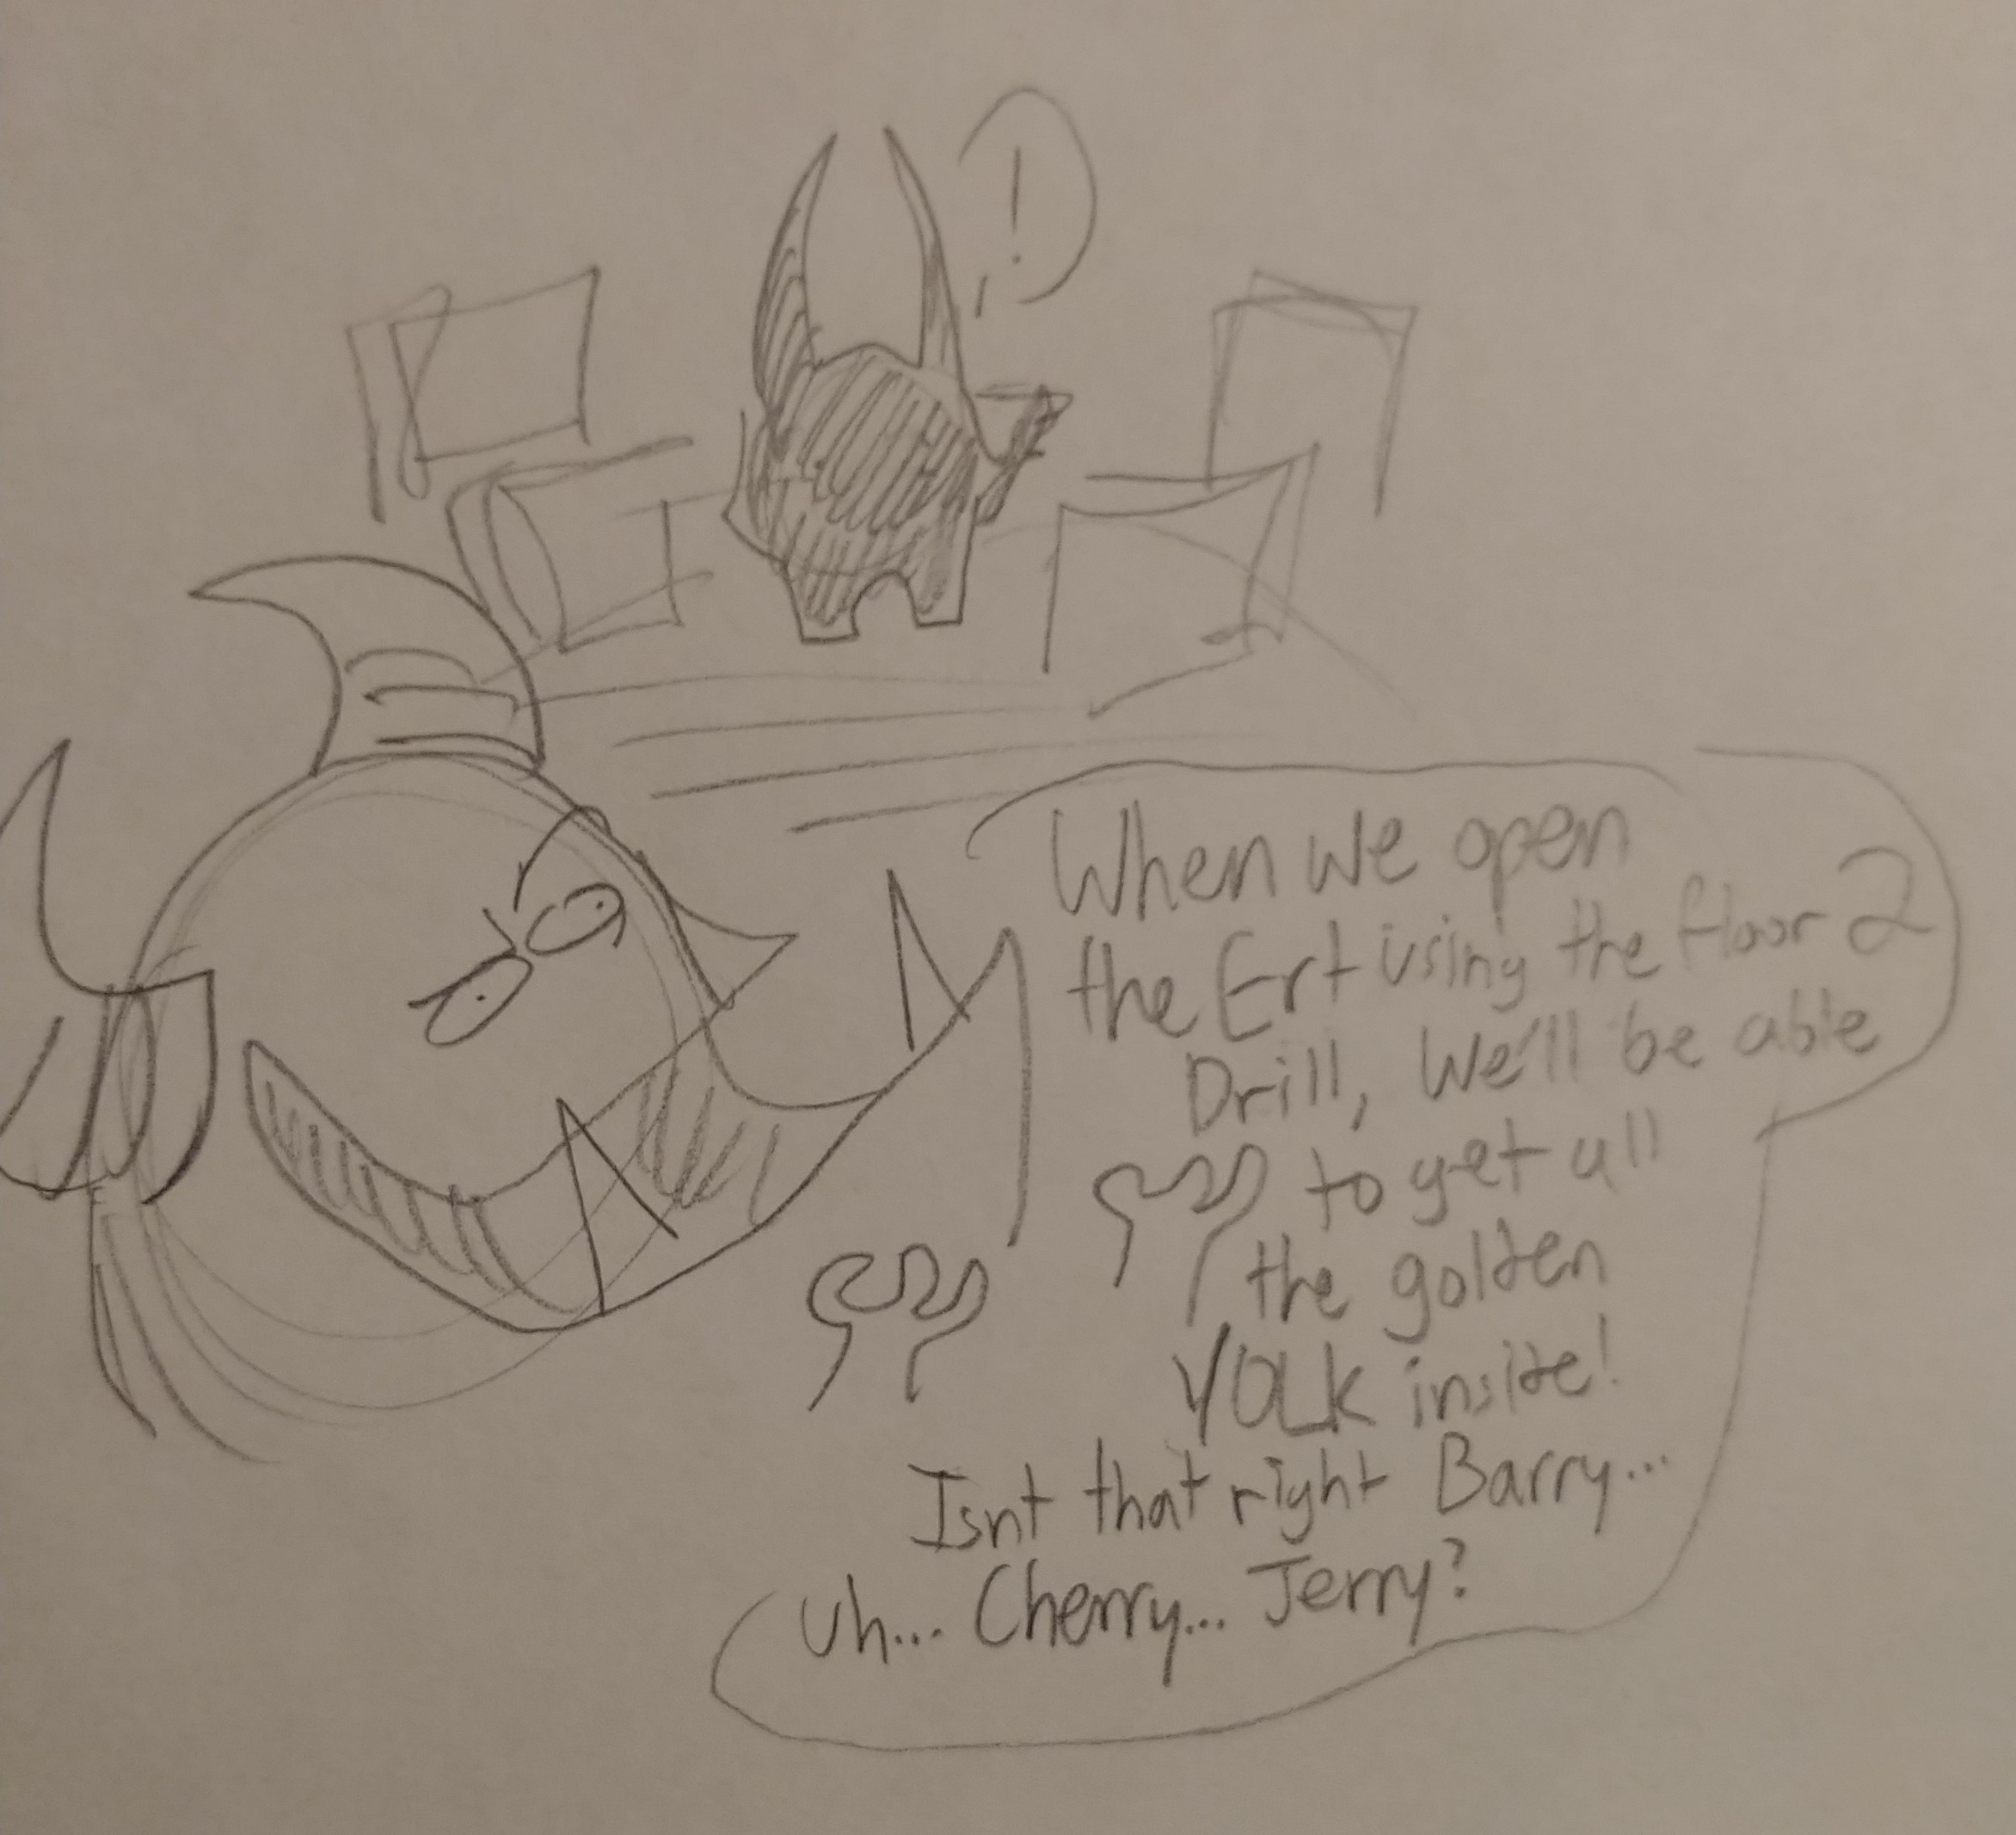 !
When we open
the Ert using the floor 2
Drill, we'll be able
to get all
the golden
YOLK inside!
Isnt that right Barry...
uh... Cherry... Jerry?